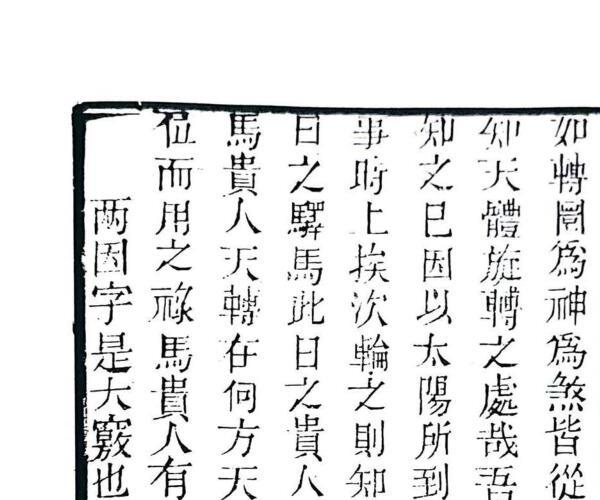 如轉圜為神為煞皆從
知天體旋轉之處哉吾
知之已因以太陽所到
事時上挨次輪之則知
日之驛馬此日之貴人
馬貴人天轉在何方天
位而用之祿馬貴人有
两因字是大竅也